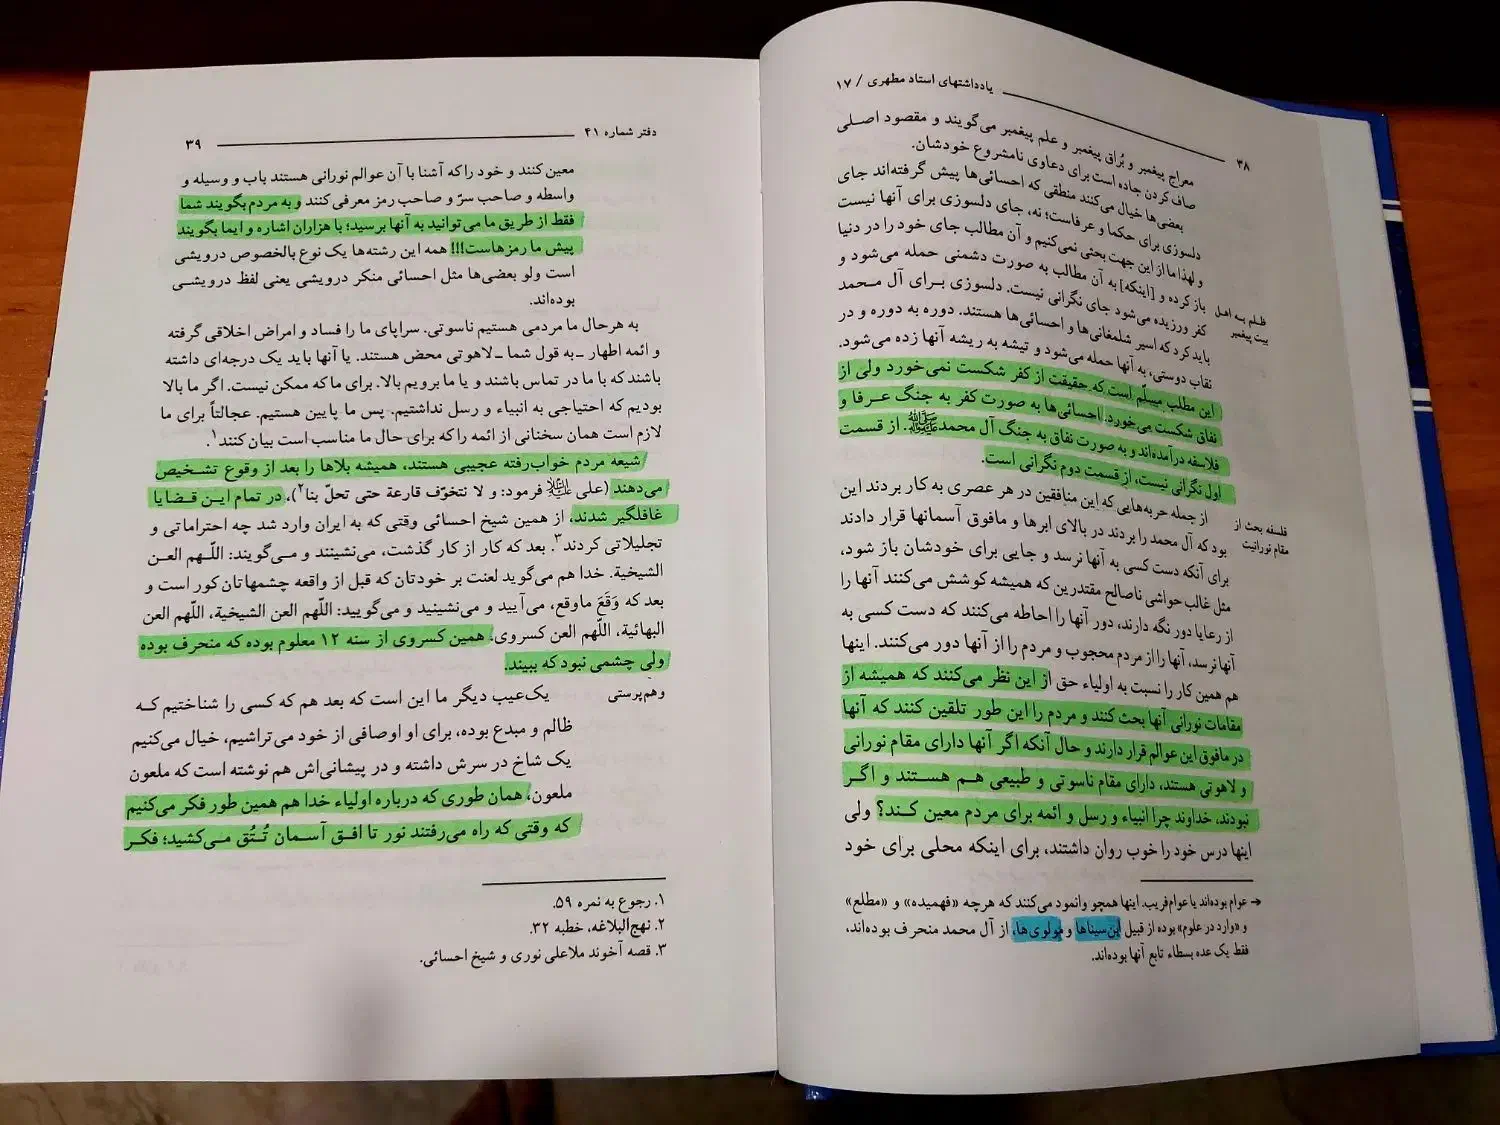 یادداشتهای استاد مطهری / ۱۷
۳۸
معراج پیغمبر و بُراق پیغمبر و علم پیغمبر می‌گویند و مقصود اصلی
صاف کردن جاده است برای دعاوی نامشروع خودشان.
بعضی‌ها خیال می‌کنند منطقی که احسائی‌ها پیش گرفته‌اند جای
دلسوزی برای حکما و عرفاست؛ نه، جای دلسوزی برای آنها نیست
و لهذا ما از این جهت بحثی نمی‌کنیم و آن مطالب جای خود را در دنیا
باز کرده و [اینکه] به آن مطالب به صورت دشمنی حمله می‌شود و
کفر ورزیده می‌شود جای نگرانی نیست. دلسوزی برای آل محمد
ظلم به اهل
بیت پیغمبر
باید کرد که اسیر شلمغانی‌ها و احسائی‌ها هستند. دوره به دوره و در
نقاب دوستی، به آنها حمله می‌شود و تیشه به ریشه آنها زده می‌شود.
این مطلب مسلّم است که حقیقت از کفر شکست نمی‌خورد ولی از
نفاق شکست می‌خورد. احسائی‌ها به صورت کفر به جنگ عرفا و
فلاسفه درآمده‌اند و به صورت نفاق به جنگ آل محمد ﷺ. از قسمت
اول نگرانی نیست، از قسمت دوم نگرانی است.
از جمله حربه‌هایی که این منافقین در هر عصری به کار بردند این
فلسفه بحث از
مقام نورانیت
بود که آل محمد را بردند در بالای ابرها و مافوق آسمانها قرار دادند
برای آنکه دست کسی به آنها نرسد و جایی برای خودشان باز شود،
مثل غالب حواشی ناصالح مقتدرین که همیشه کوشش می‌کنند آنها را
از رعایا دور نگه دارند، دور آنها را احاطه می‌کنند که دست کسی به
آنها نرسد، آنها را از مردم محجوب و مردم را از آنها دور می‌کنند. اینها
هم همین کار را نسبت به اولیاء حق از این نظر می‌کنند که همیشه از
مقامات نورانی آنها بحث کنند و مردم را این طور تلقین کنند که آنها
در مافوق این عوالم قرار دارند و حال آنکه اگر آنها دارای مقام نورانی
و لاهوتی هستند، دارای مقام ناسوتی و طبیعی هم هستند و اگر
نبودند، خداوند چرا انبیاء و رسل و ائمه برای مردم معین کند؟ ولی
اینها درس خود را خوب روان داشتند، برای اینکه محلی برای خود
→ عوام بوده‌اند یا عوام‌فریب. اینها همچو وانمود می‌کنند که هرچه «فهمیده» و «مطلع»
و «وارد در علوم» بوده از قبیل ابن‌سیناها و مولوی‌ها، از آل محمد منحرف بوده‌اند،
فقط یک عده بسطاء تابع آنها بوده‌اند.
دفتر شماره ۴۱
۳۹
معین کنند و خود را که آشنا با آن عوالم نورانی هستند باب و وسیله و
واسطه و صاحب سرّ و صاحب رمز معرفی کنند و به مردم بگویند شما
فقط از طریق ما می‌توانید به آنها برسید؛ با هزاران اشاره و ایما بگویند
پیش ما رمزهاست!!! همه این رشته‌ها یک نوع بالخصوص درویشی
است ولو بعضی‌ها مثل احسائی منکر درویشی یعنی لفظ درویشی
بوده‌اند.
به هرحال ما مردمی هستیم ناسوتی. سراپای ما را فساد و امراض اخلاقی گرفته
و ائمه اطهار ـ به قول شما ـ لاهوتی محض هستند. یا آنها باید یک درجه‌ای داشته
باشند که با ما در تماس باشند و یا ما برویم بالا. برای ما که ممکن نیست. اگر ما بالا
بودیم که احتیاجی به انبیاء و رسل نداشتیم. پس ما پایین هستیم. عجالتاً برای ما
لازم است همان سخنانی از ائمه را که برای حال ما مناسب است بیان کنند۱.
شیعه مردم خواب‌رفته عجیبی هستند، همیشه بلاها را بعد از وقوع تشخیص
می‌دهند (علی علیه‌السلام فرمود: و لا نتخوّف قارعة حتی تحلّ بنا۲)، در تمام این قضایا
غافلگیر شدند، از همین شیخ احسائی وقتی که به ایران وارد شد چه احتراماتی و
تجلیلاتی کردند۳. بعد که کار از کار گذشت، می‌نشینند و می‌گویند: اللّهم العن
الشیخیة. خدا هم می‌گوید لعنت بر خودتان که قبل از واقعه چشمهاتان کور است و
بعد که وَقَعَ ماوقع، می‌آیید و می‌نشینید و می‌گویید: اللّهم العن الشیخیة، اللّهم العن
البهائیة، اللّهم العن کسروی. همین کسروی از سنه ۱۲ معلوم بوده که منحرف بوده
ولی چشمی نبود که ببیند.
وهم‌پرستی
یک عیب دیگر ما این است که بعد هم که کسی را شناختیم که
ظالم و مبدع بوده، برای او اوصافی از خود می‌تراشیم، خیال می‌کنیم
یک شاخ در سرش داشته و در پیشانی‌اش هم نوشته است که ملعون
ملعون، همان طوری که درباره اولیاء خدا هم همین طور فکر می‌کنیم
که وقتی که راه می‌رفتند نور تا افق آسمان تُتُق می‌کشید؛ فکر
۱. رجوع به نمره ۵۹.
۲. نهج‌البلاغه، خطبه ۳۲.
۳. قصه آخوند ملاعلی نوری و شیخ احسائی.